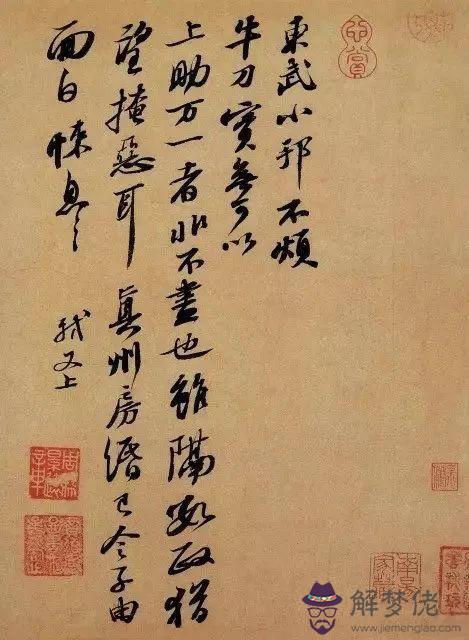 東武小邦不煩
牛刀實無可以
上助万一者非不盡也雖隔數政猶
望掩惡耳真州房緡已令子由
面白悚息〻
軾又上
解梦佬
www.jiemenglao.com